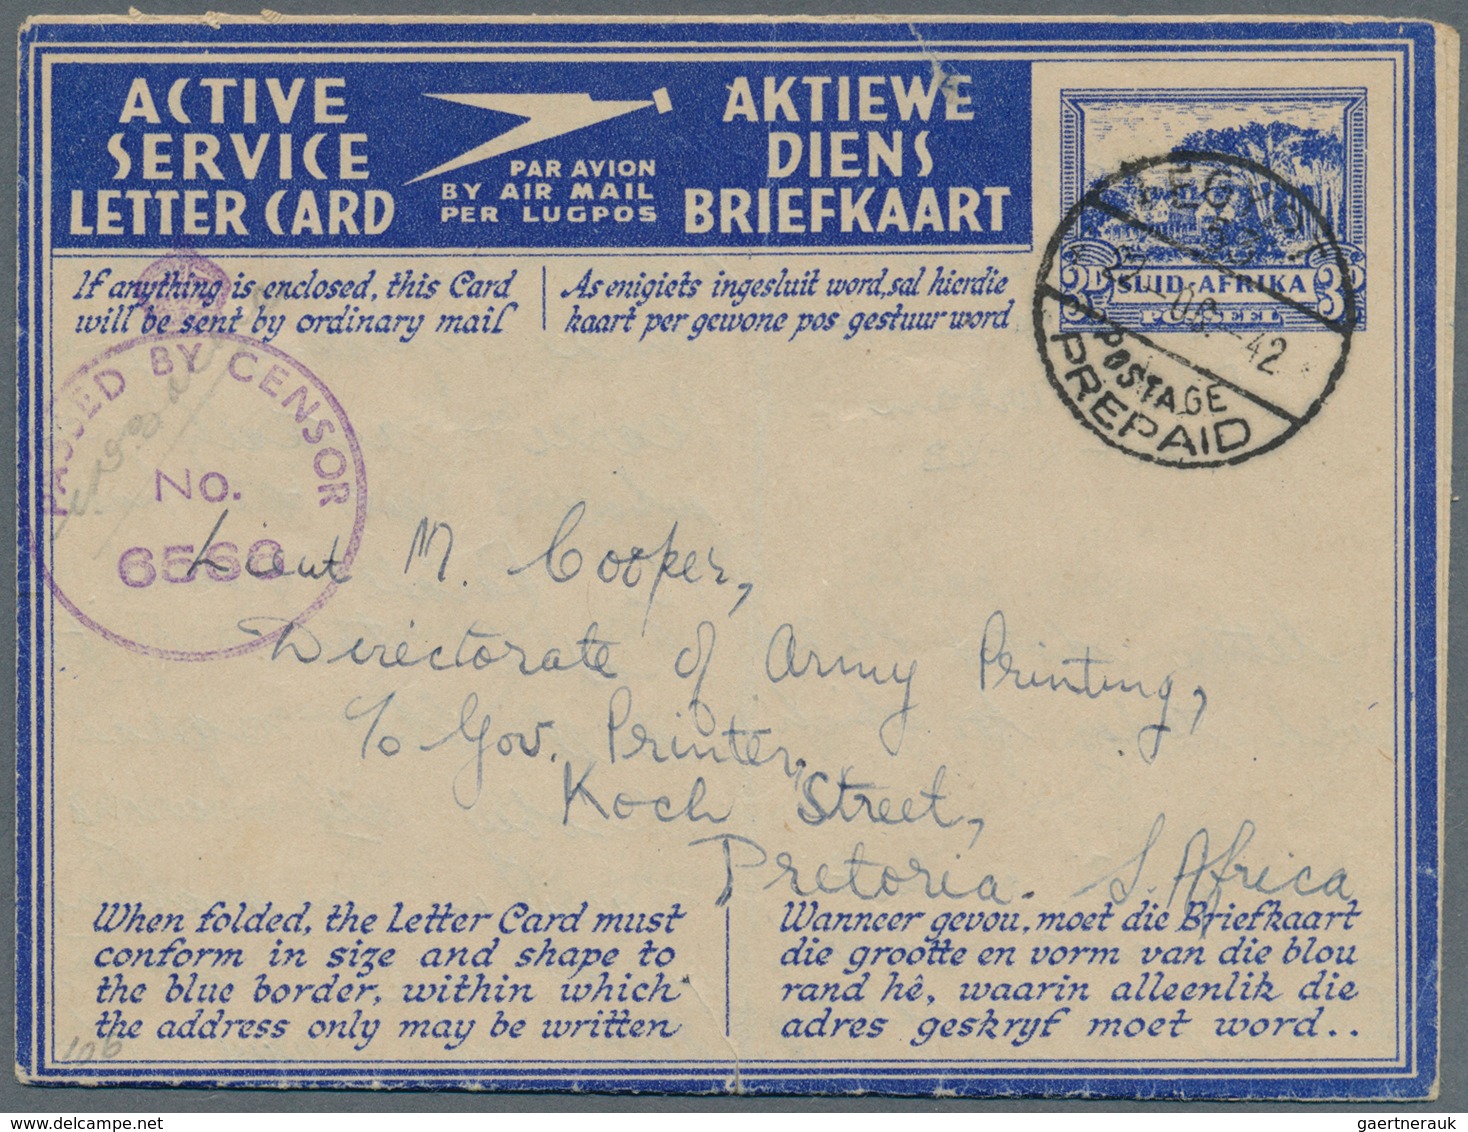 ACTIVE
SERVICE
LETTER CARD
PAR AVION
BY AIR MAIL
PER LUGPOS
AKTIEWE
DIENS
BRIEFKAART
EGYPT
SUID-AFRIKA
3D 3D
POSSEEL
POSTAGE
PREPAID
If anything is enclosed, this Card
will be sent by ordinary mail
As enigiets ingesluit word, sal hierdie
kaart per gewone pos gestuur word
PASSED BY CENSOR
No.
Lieut M. Cooper,
Directorate of Army Printing,
c/o Gov. Printer,
Koch Street,
Pretoria. S. Africa
When folded, the Letter Card must
conform in size and shape to
the blue border, within which
the address only may be written
Wanneer gevou, moet die Briefkaart
die grootte en vorm van die blou
rand hê, waarin alleenlik die
adres geskryf moet word..
106
gaertnerauk @ www.delcampe.net